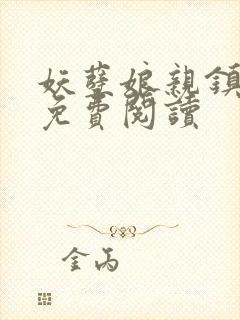 妖孽娘親鎮
免費閱讀
金丙